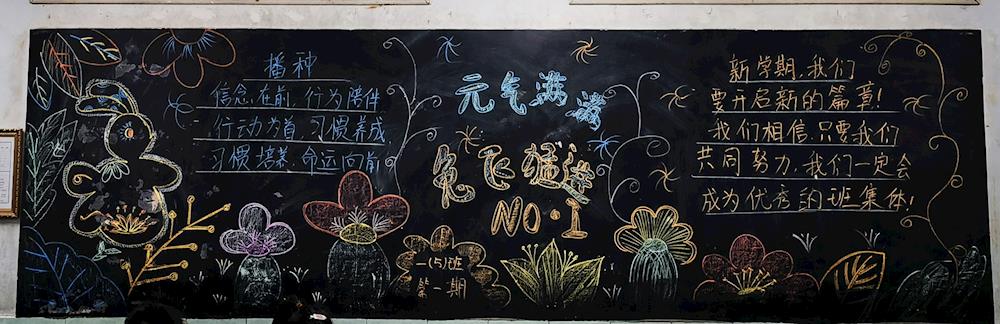 播种
信念在前,行为陪伴
行动为首,习惯养成
习惯培养,命运向前
元气满满
兔飞猛进
NO·1
一(5)班
第一期
新学期,我们
要开启新的篇章!
我们相信,只要我们
共同努力,我们一定会
成为优秀的班集体!